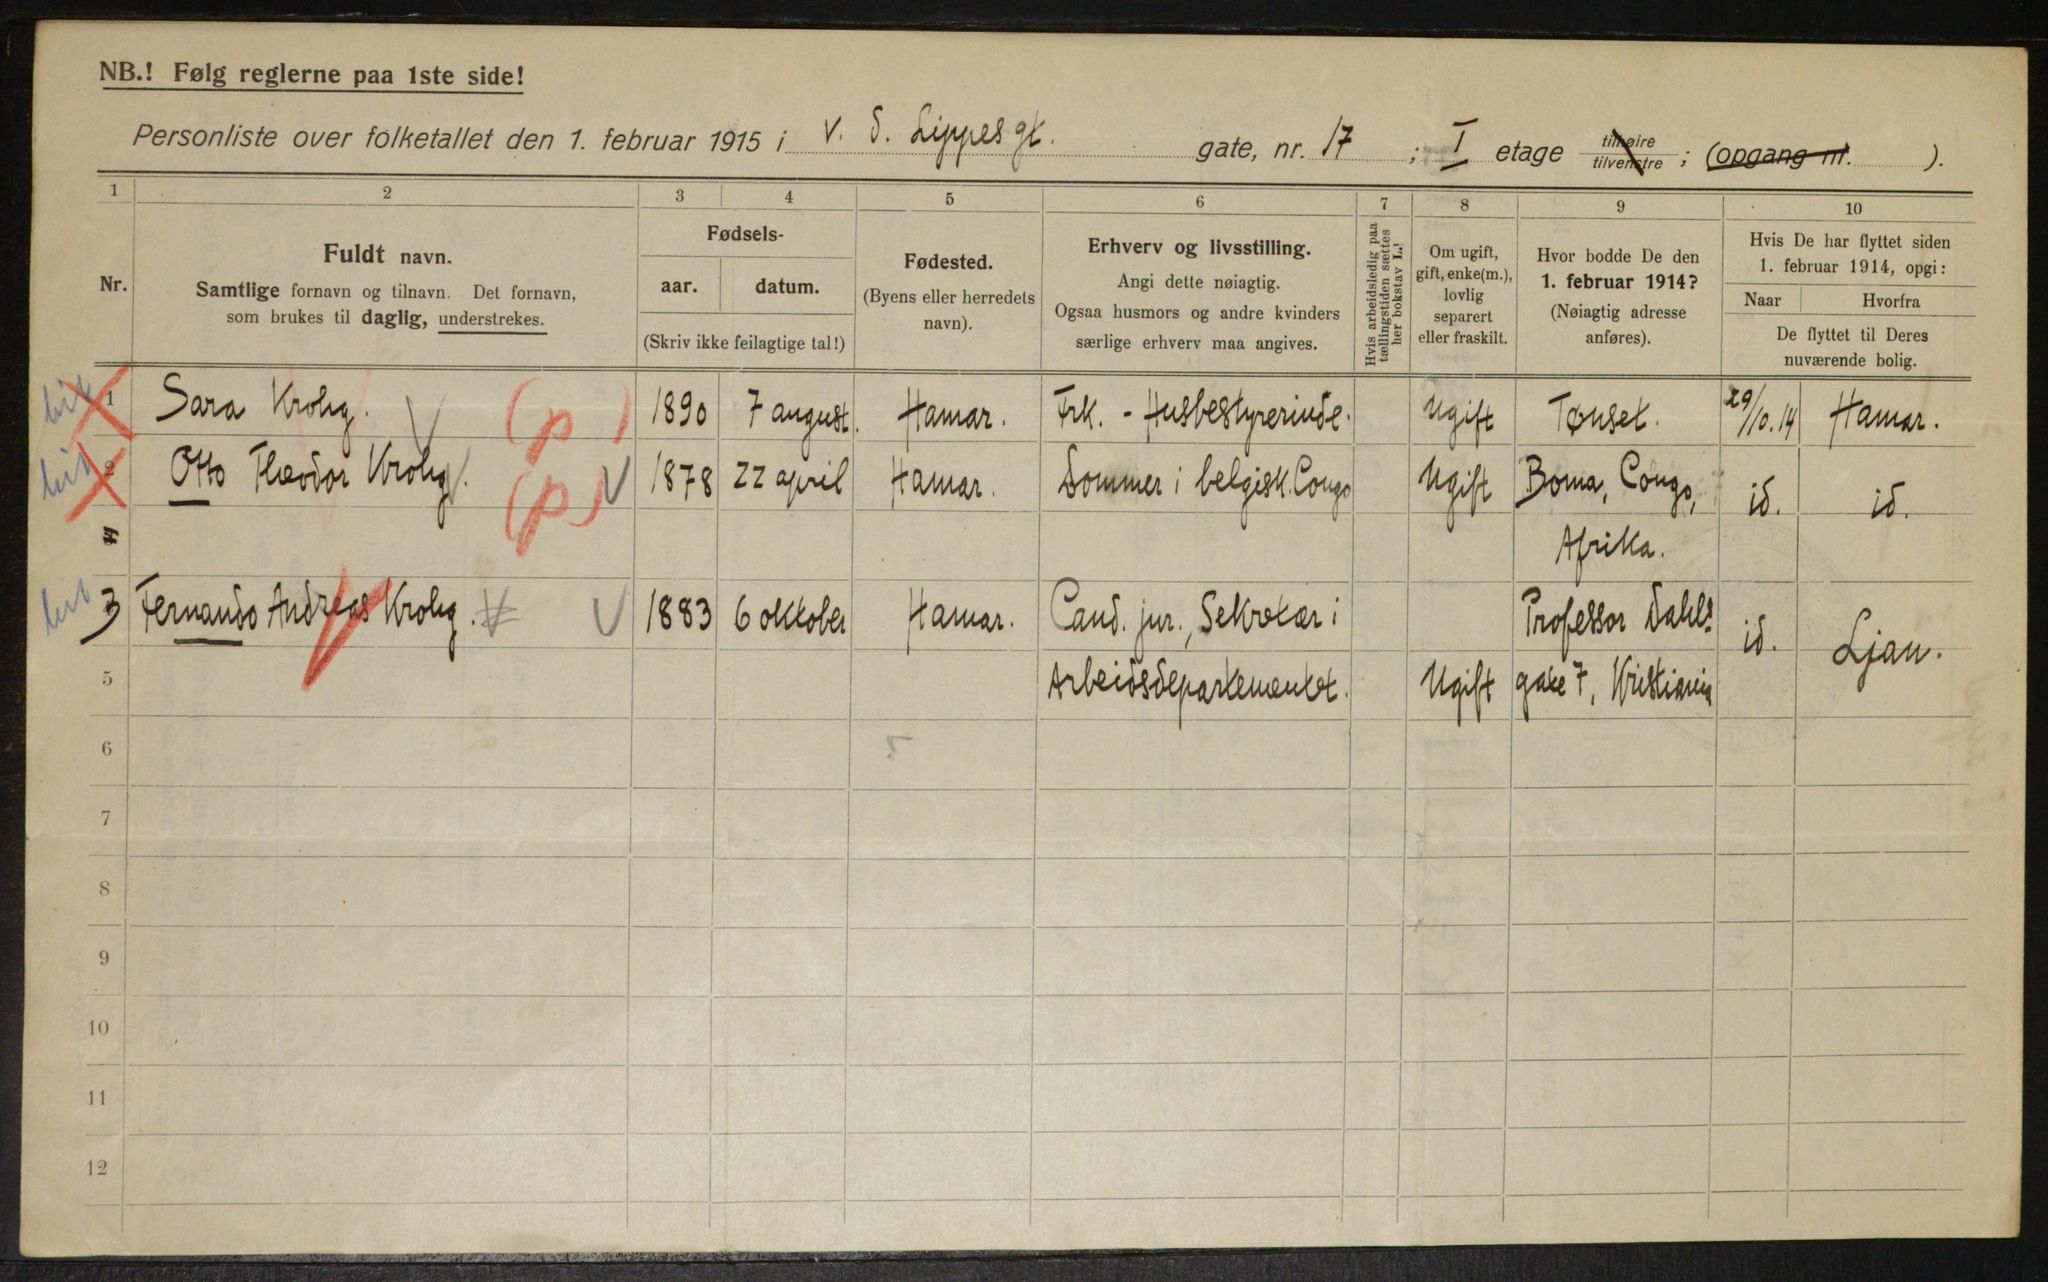 NB.! Følg reglerne paa 1ste side!
Personliste over folketallet den 1. februar 1915 i V. d. Lippes gt. gate, nr. 17 ; I etage tilhøire tilvenstre ; (opgang nr. ).
1 2 3 4 5 6 7 8 9 10
Nr.
Fuldt navn.
Samtlige fornavn og tilnavn. Det fornavn,
som brukes til daglig, understrekes.
Fødsels-
aar. datum.
(Skriv ikke feilagtige tal!)
Fødested.
(Byens eller herredets
navn).
Erhverv og livsstilling.
Angi dette nøiagtig.
Ogsaa husmors og andre kvinders
særlige erhverv maa angives.
Hvis arbeidsledig paa
tællingstiden sættes
her bokstav L.!
Om ugift,
gift, enke(m.),
lovlig
separert
eller fraskilt.
Hvor bodde De den
1. februar 1914?
(Nøiagtig adresse
anføres).
Hvis De har flyttet siden
1. februar 1914, opgi:
Naar Hvorfra
De flyttet til Deres
nuværende bolig.
1 Sara Krohg. (p) 1890 7 august. Hamar. Frk. - Husbestyrerinde. Ugift Tønset. 29/10.14 Hamar.
2 Otto Theodor Krohg. (p) 1878 22 april Hamar. Dommer i belgisk. Congo Ugift Boma, Congo, id. id.
Afrika.
3 Fernando Andreas Krohg. 1883 6 oktober Hamar. Cand. jur., Sekretær i Professor Dahls id. Ljan.
5 Arbeidsdepartementet. Ugift gate 7, Kristiania
6
7
8
9
10
11
12